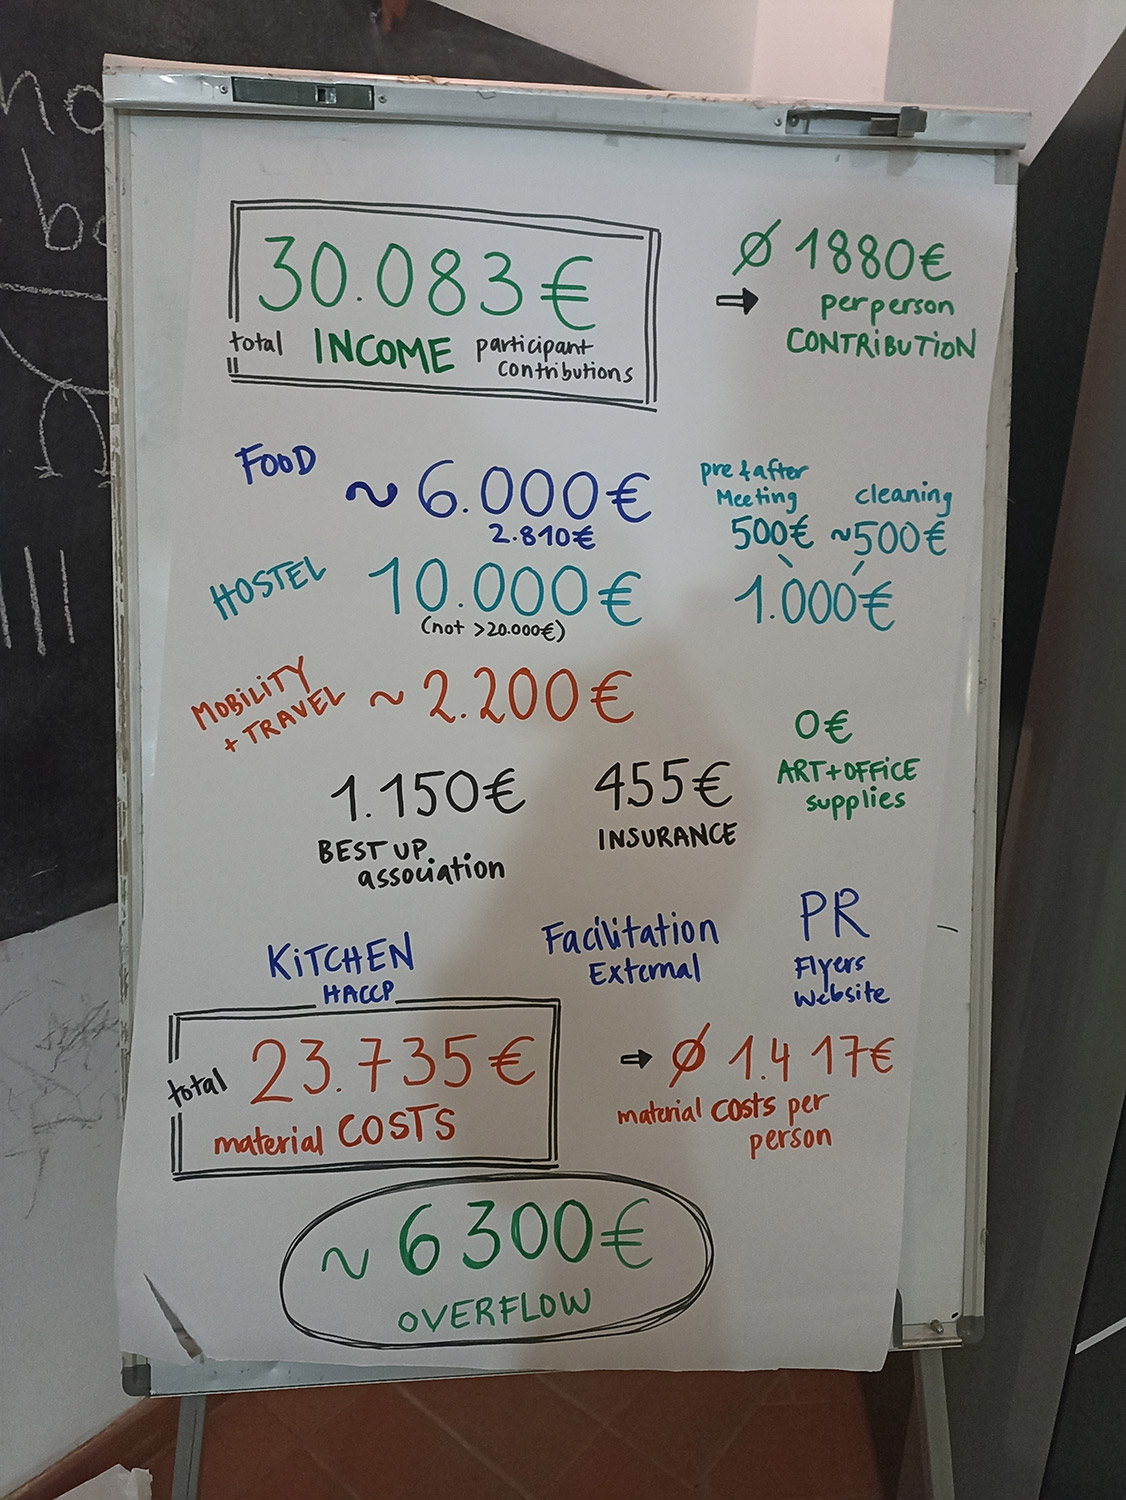 30.083€
total INCOME participant
contributions
Ø 1880€
⇒ per person
CONTRIBUTION
FOOD ~ 6.000€
2.810€
pre & after
Meeting
500€
cleaning
~500€
1.000€
HOSTEL 10.000€
(not >20.000€)
MOBILITY
+ TRAVEL ~ 2.200€
0€
ART+OFFICE
supplies
1.150€
BEST UP
association
455€
INSURANCE
KITCHEN
HACCP
Facilitation
External
PR
Flyers
Website
total 23.735€
material COSTS
⇒ Ø 1.417€
material costs per
person
~ 6300€
OVERFLOW